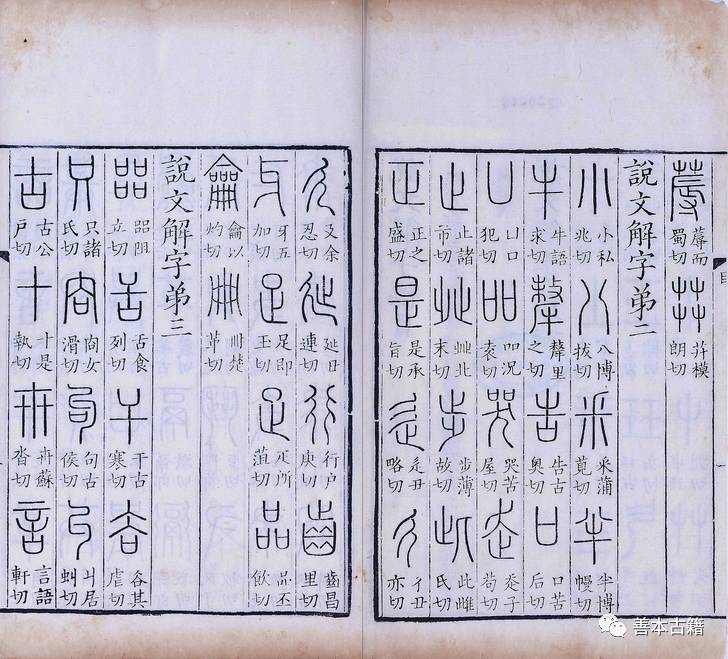 蓐 蓐而蜀切 茻 茻模朗切
說文解字弟二
小 小私兆切 八 八博拔切 釆 釆蒲莧切 半 半博幔切
牛 牛語求切 犛 犛里之切 告 告古奥切 口 口苦后切
凵 凵口犯切 吅 吅况袁切 哭 哭苦屋切 走 走子苟切
止 止諸市切 癶 癶北末切 步 步薄故切 此 此雌氏切
正 正之盛切 是 是承旨切 辵 辵丑略切 彳 彳丑亦切
廴 廴余忍切 㢟 㢟丑連切 行 行户庚切 齒 齒昌里切
牙 牙五加切 足 足即玉切 疋 疋所菹切 品 品丕飲切
龠 龠以灼切 冊 冊楚革切
說文解字弟三
㗊 㗊阻立切 舌 舌食列切 干 干古寒切 𧮫 𧮫其虐切
只 只諸氏切 㕯 㕯女滑切 句 句古侯切 丩 丩居虯切
古 古公户切 十 十是執切 卅 卅蘇沓切 言 言語軒切
善本古籍